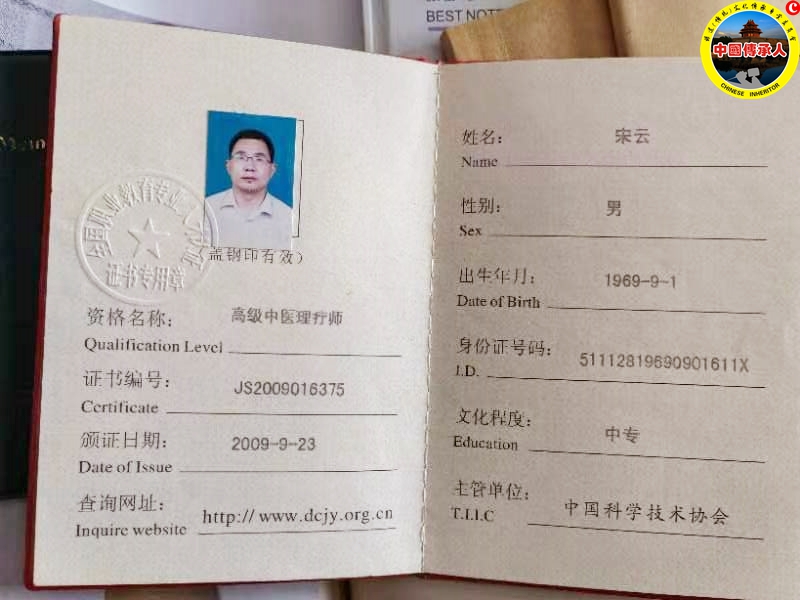 BEST NOT
中國傳承人
CHINESE INHERITOR
证书专用章
盖钢印有效）
资格名称： 高级中医理疗师
Qualification Level
证书编号： JS2009016375
Certificate
颁证日期： 2009-9-23
Date of Issue
查询网址： http://www.dcjy.org.cn
Inquire website
姓名： 宋云
Name
性别： 男
Sex
出生年月： 1969-9-1
Date of Birth
身份证号码： 51112819690901611X
I.D.
文化程度： 中专
Education
主管单位： 中国科学技术协会
T.I.I.C